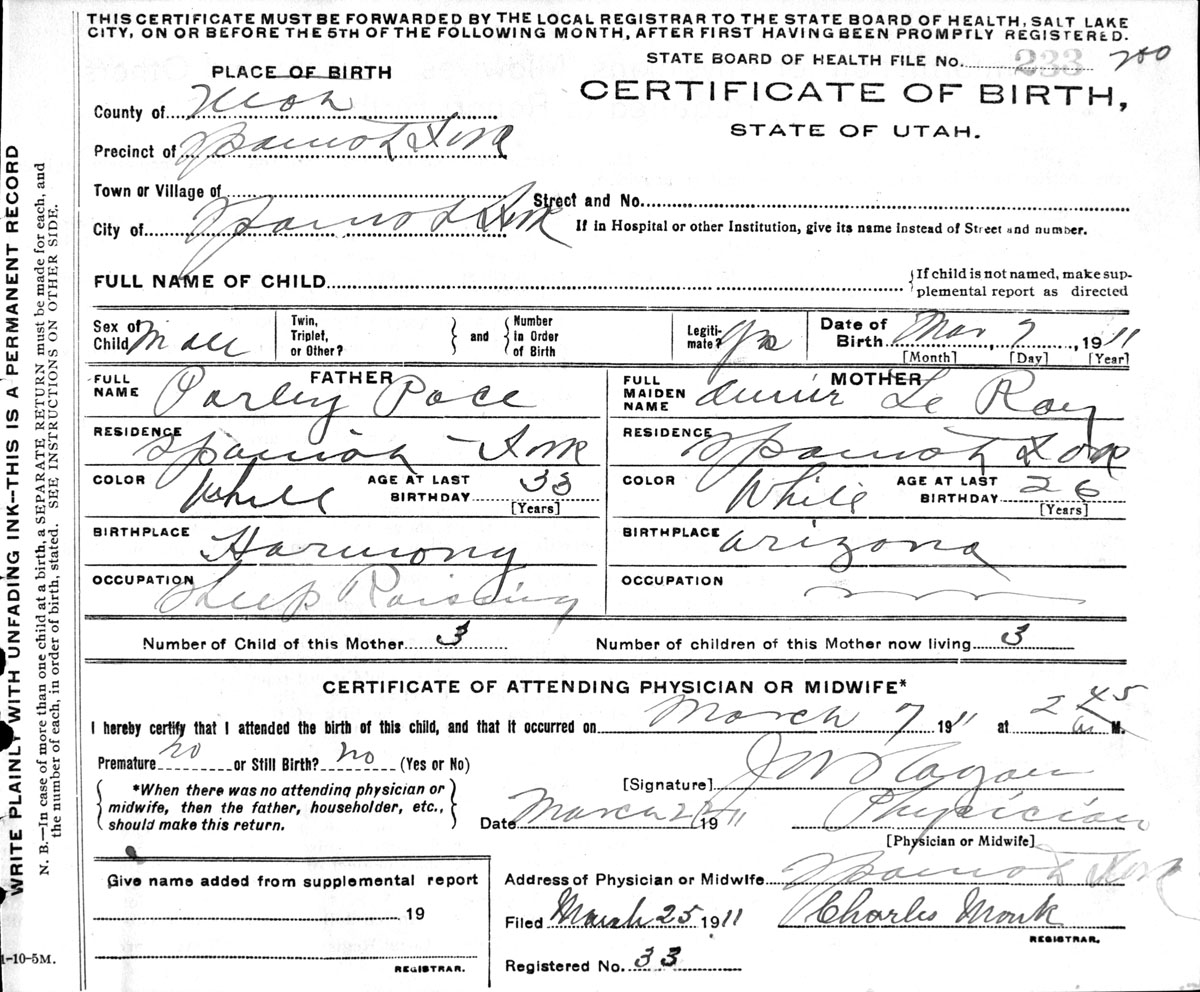 THIS CERTIFICATE MUST BE FORWARDED BY THE LOCAL REGISTRAR TO THE STATE BOARD OF HEALTH, SALT LAKE
CITY, ON OR BEFORE THE 5TH OF THE FOLLOWING MONTH, AFTER FIRST HAVING BEEN PROMPTLY REGISTERED.
STATE BOARD OF HEALTH FILE No. 233 200
PLACE OF BIRTH
CERTIFICATE OF BIRTH,
STATE OF UTAH.
County of Utah
Precinct of Spanish Fork
Town or Village of
Street and No.
City of Spanish Fork
If in Hospital or other Institution, give its name instead of Street and number.
FULL NAME OF CHILD
{If child is not named, make sup-
plemental report as directed
Sex of Child Male
Twin, Triplet, or Other? } and { Number in Order of Birth
Legiti-mate? Yes
Date of Birth Mar, 7, 1911
[Month] [Day] [Year]
FATHER
FULL NAME Parley Pace
MOTHER
FULL MAIDEN NAME Annie Le Roy
RESIDENCE Spanish Fork
RESIDENCE Spanish Fork
COLOR White AGE AT LAST BIRTHDAY 33 [Years]
COLOR White AGE AT LAST BIRTHDAY 26 [Years]
BIRTHPLACE Harmony
BIRTHPLACE Arizona
OCCUPATION Sheep Raising
OCCUPATION
Number of Child of this Mother 3
Number of children of this Mother now living 3
CERTIFICATE OF ATTENDING PHYSICIAN OR MIDWIFE*
I hereby certify that I attended the birth of this child, and that it occurred on March 7 1911 at 2 45 a M.
Premature no or Still Birth? no (Yes or No)
[Signature] J W Hagan
{ *When there was no attending physician or
midwife, then the father, householder, etc.,
should make this return. }
Date March 22 1911
Physician
[Physician or Midwife]
Give name added from supplemental report
19
REGISTRAR.
Address of Physician or Midwife Spanish Fork
Filed March 25 1911 Charles Monk
REGISTRAR.
Registered No. 33
WRITE PLAINLY WITH UNFADING INK--THIS IS A PERMANENT RECORD
N. B.—In case of more than one child at a birth a SEPARATE RETURN must be made for each, and
the number of each, in order of birth, stated. SEE INSTRUCTIONS ON OTHER SIDE.
1-10-5M.